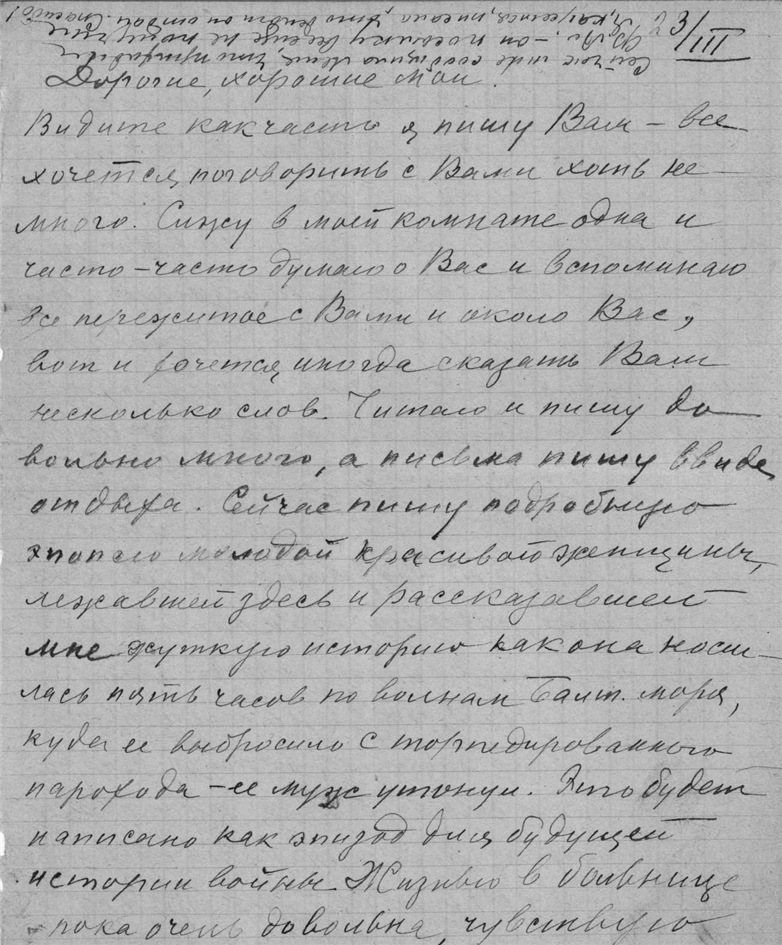 3/III
Дорогие, хорошие мои.
Видите как часто я пишу Вам – все
хочется поговорить с Вами хоть не-
много. Сижу в моей комнате одна и
часто-часто думаю о Вас и вспоминаю
все пережитое с Вами и около Вас,
вот и хочется иногда сказать Вам
несколько слов. Читаю и пишу до-
вольно много, а письма пишу в виде
отдыха. Сейчас пишу подробную
эпопею молодой красивой женщины,
лежавшей здесь и рассказавшей
мне жуткую историю как она носи-
лась пять часов по волнам Балт. моря,
куда ее выбросило с торпедированного
парохода – ее муж утонул. Это будет
написано как эпизод для будущей
истории войны. Жизнью в больнице
пока очень довольна, чувствую